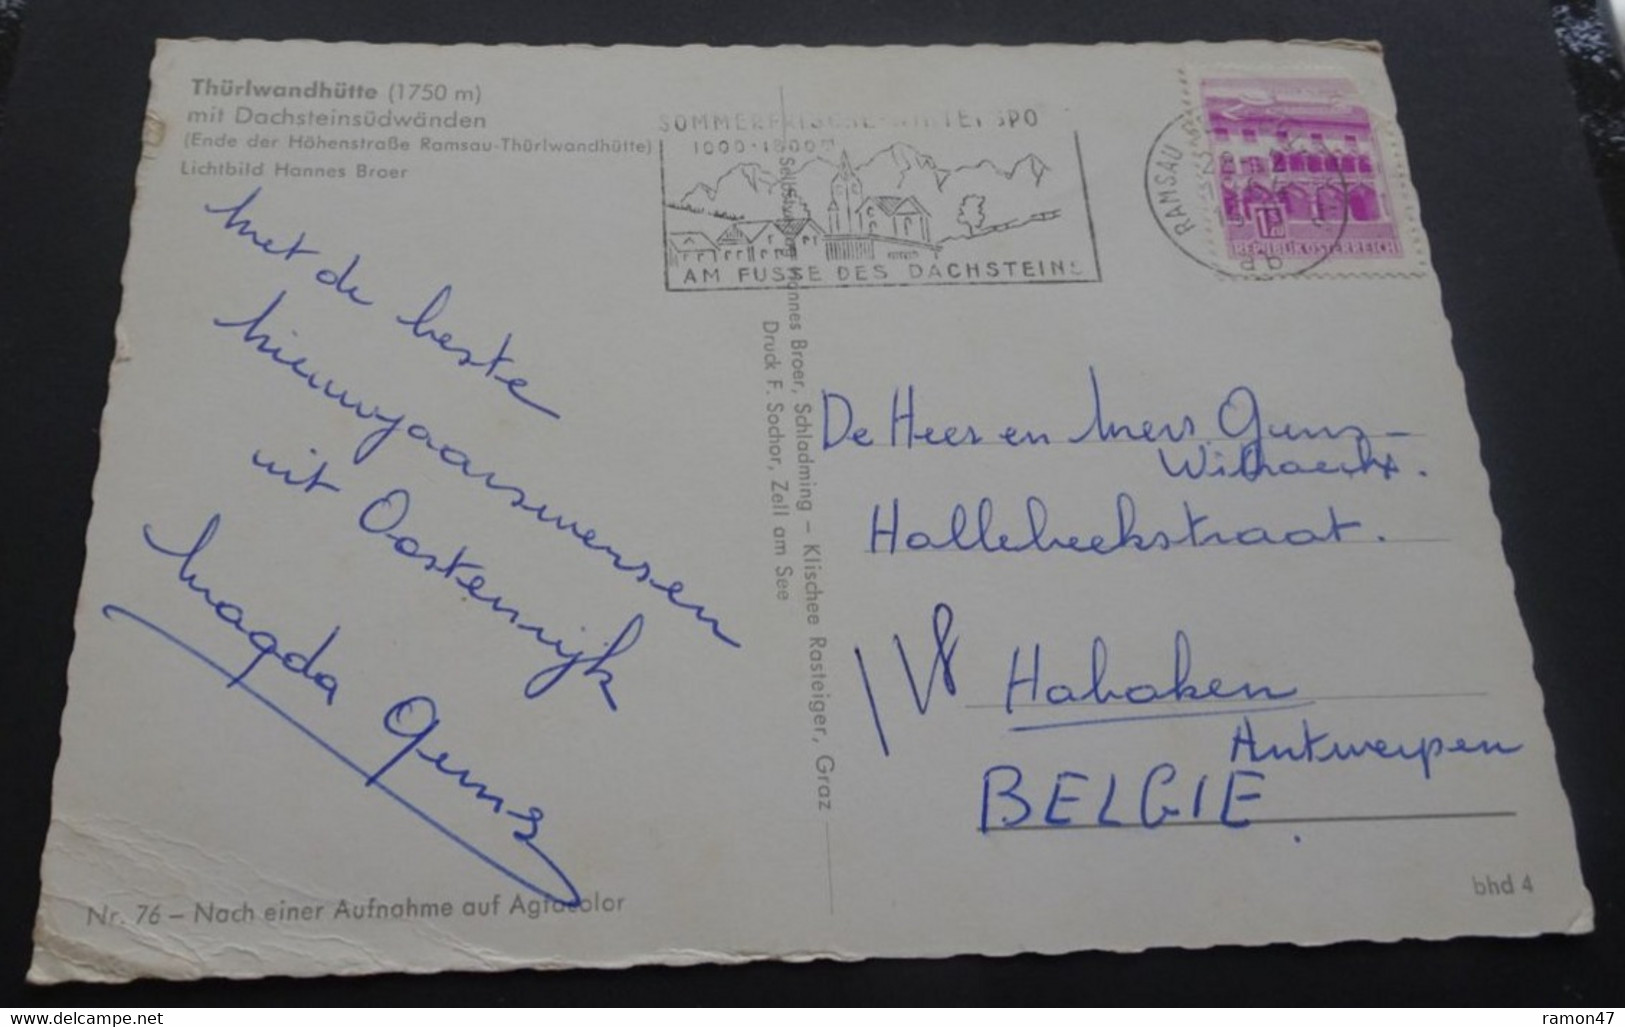 Thürlwandhütte (1750 m)
mit Dachsteinsüdwänden
(Ende der Höhenstraße Ramsau-Thürlwandhütte)
Lichtbild Hannes Broer
Met de beste
nieuwjaarswensen
uit Oostenrijk
Magda Guns
Nr. 76 – Nach einer Aufnahme auf Agfacolor
Selbstverlag Hannes Broer, Schladming – Klischee Rasteiger, Graz
Druck F. Sochor, Zell am See
SOMMERFRISCHE-WINTERSPO
1000-1800m
AM FUSSE DES DACHSTEINS
RAMSAU
REPUBLIK ÖSTERREICH
De Heer en Mevr Guns-
Hallebeekstraat.
Hoboken
Antwerpen
BELGIE
bhd 4
www.delcampe.net
ramon47